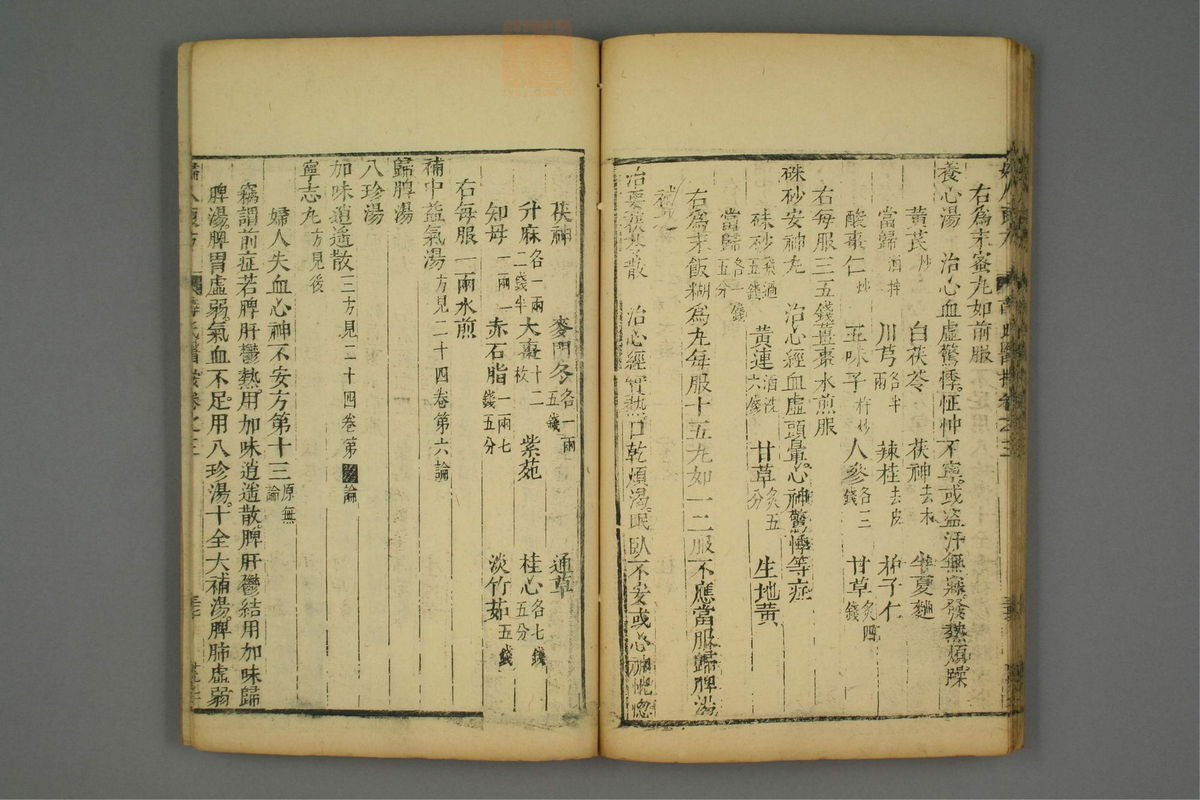 右為末蜜丸如前服
養心湯　治心血虛驚悸怔忡不寧或盗汗無寐發熱煩躁
黃芪炒　白茯苓　茯神去木　半夏麯
當歸酒拌　川芎各半兩　辣桂去皮　柏子仁
酸棗仁炒　五味子杵炒　人參各三錢　甘草炙四錢
右每服三五錢薑棗水煎服
硃砂安神丸　治心經血虛頭暈心神驚悸等症
硃砂飛過五錢　黃連酒洗六錢　甘草炙五分　生地黃
當歸各一錢五分
右為末飯糊為丸每服十五丸如一二服不應當服歸脾湯
補之
治　散　治心經實熱口乾煩渴眠臥不安或心神恍惚
茯神　麥門冬各一兩五錢　通草
升麻各一兩二錢半　大棗十二枚　紫菀　桂心各七錢五分
知母一兩一　赤石脂一兩七錢五分　淡竹茹五錢
右每服一兩水煎
補中益氣湯方見二十四卷第六論
歸脾湯
八珍湯
加味逍遙散三方見二十四卷第論
寧志丸方見後
婦人失血心神不安方第十三原無論
竊謂前症若脾肝鬱熱用加味逍遙散脾肝鬱結用加味歸
脾湯脾胃虛弱氣血不足用八珍湯十全大補湯脾肺虛弱